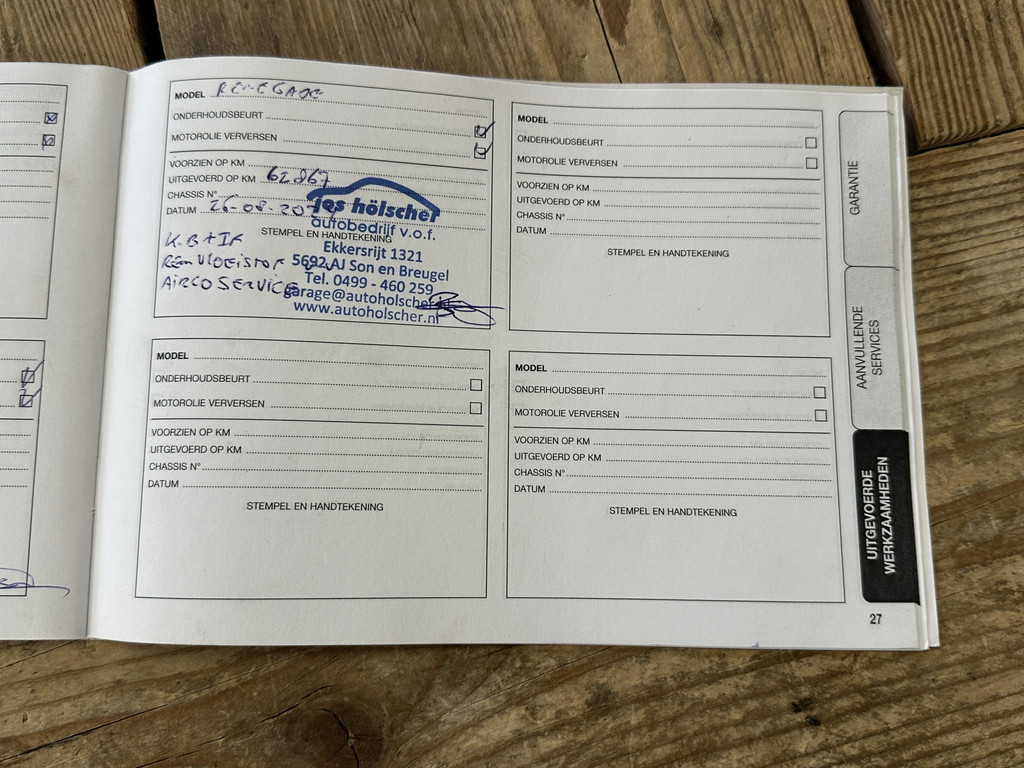 MODEL RENEGADE
ONDERHOUDSBEURT
MOTOROLIE VERVERSEN
VOORZIEN OP KM
UITGEVOERD OP KM 62867
CHASSIS N°
DATUM 26-08-20
STEMPEL EN HANDTEKENING
jos hölscher
autobedrijf v.o.f.
Ekkersrijt 1321
5692 AJ Son en Breugel
Tel. 0499 - 460 259
garage@autoholscher
www.autoholscher.nl
REMVLOEISTOF
AIRCO SERVICE
MODEL
ONDERHOUDSBEURT
MOTOROLIE VERVERSEN
VOORZIEN OP KM
UITGEVOERD OP KM
CHASSIS N°
DATUM
STEMPEL EN HANDTEKENING
MODEL
ONDERHOUDSBEURT
MOTOROLIE VERVERSEN
VOORZIEN OP KM
UITGEVOERD OP KM
CHASSIS N°
DATUM
STEMPEL EN HANDTEKENING
MODEL
ONDERHOUDSBEURT
MOTOROLIE VERVERSEN
VOORZIEN OP KM
UITGEVOERD OP KM
CHASSIS N°
DATUM
STEMPEL EN HANDTEKENING
GARANTIE
AANVULLENDE
SERVICES
UITGEVOERDE
WERKZAAMHEDEN
27